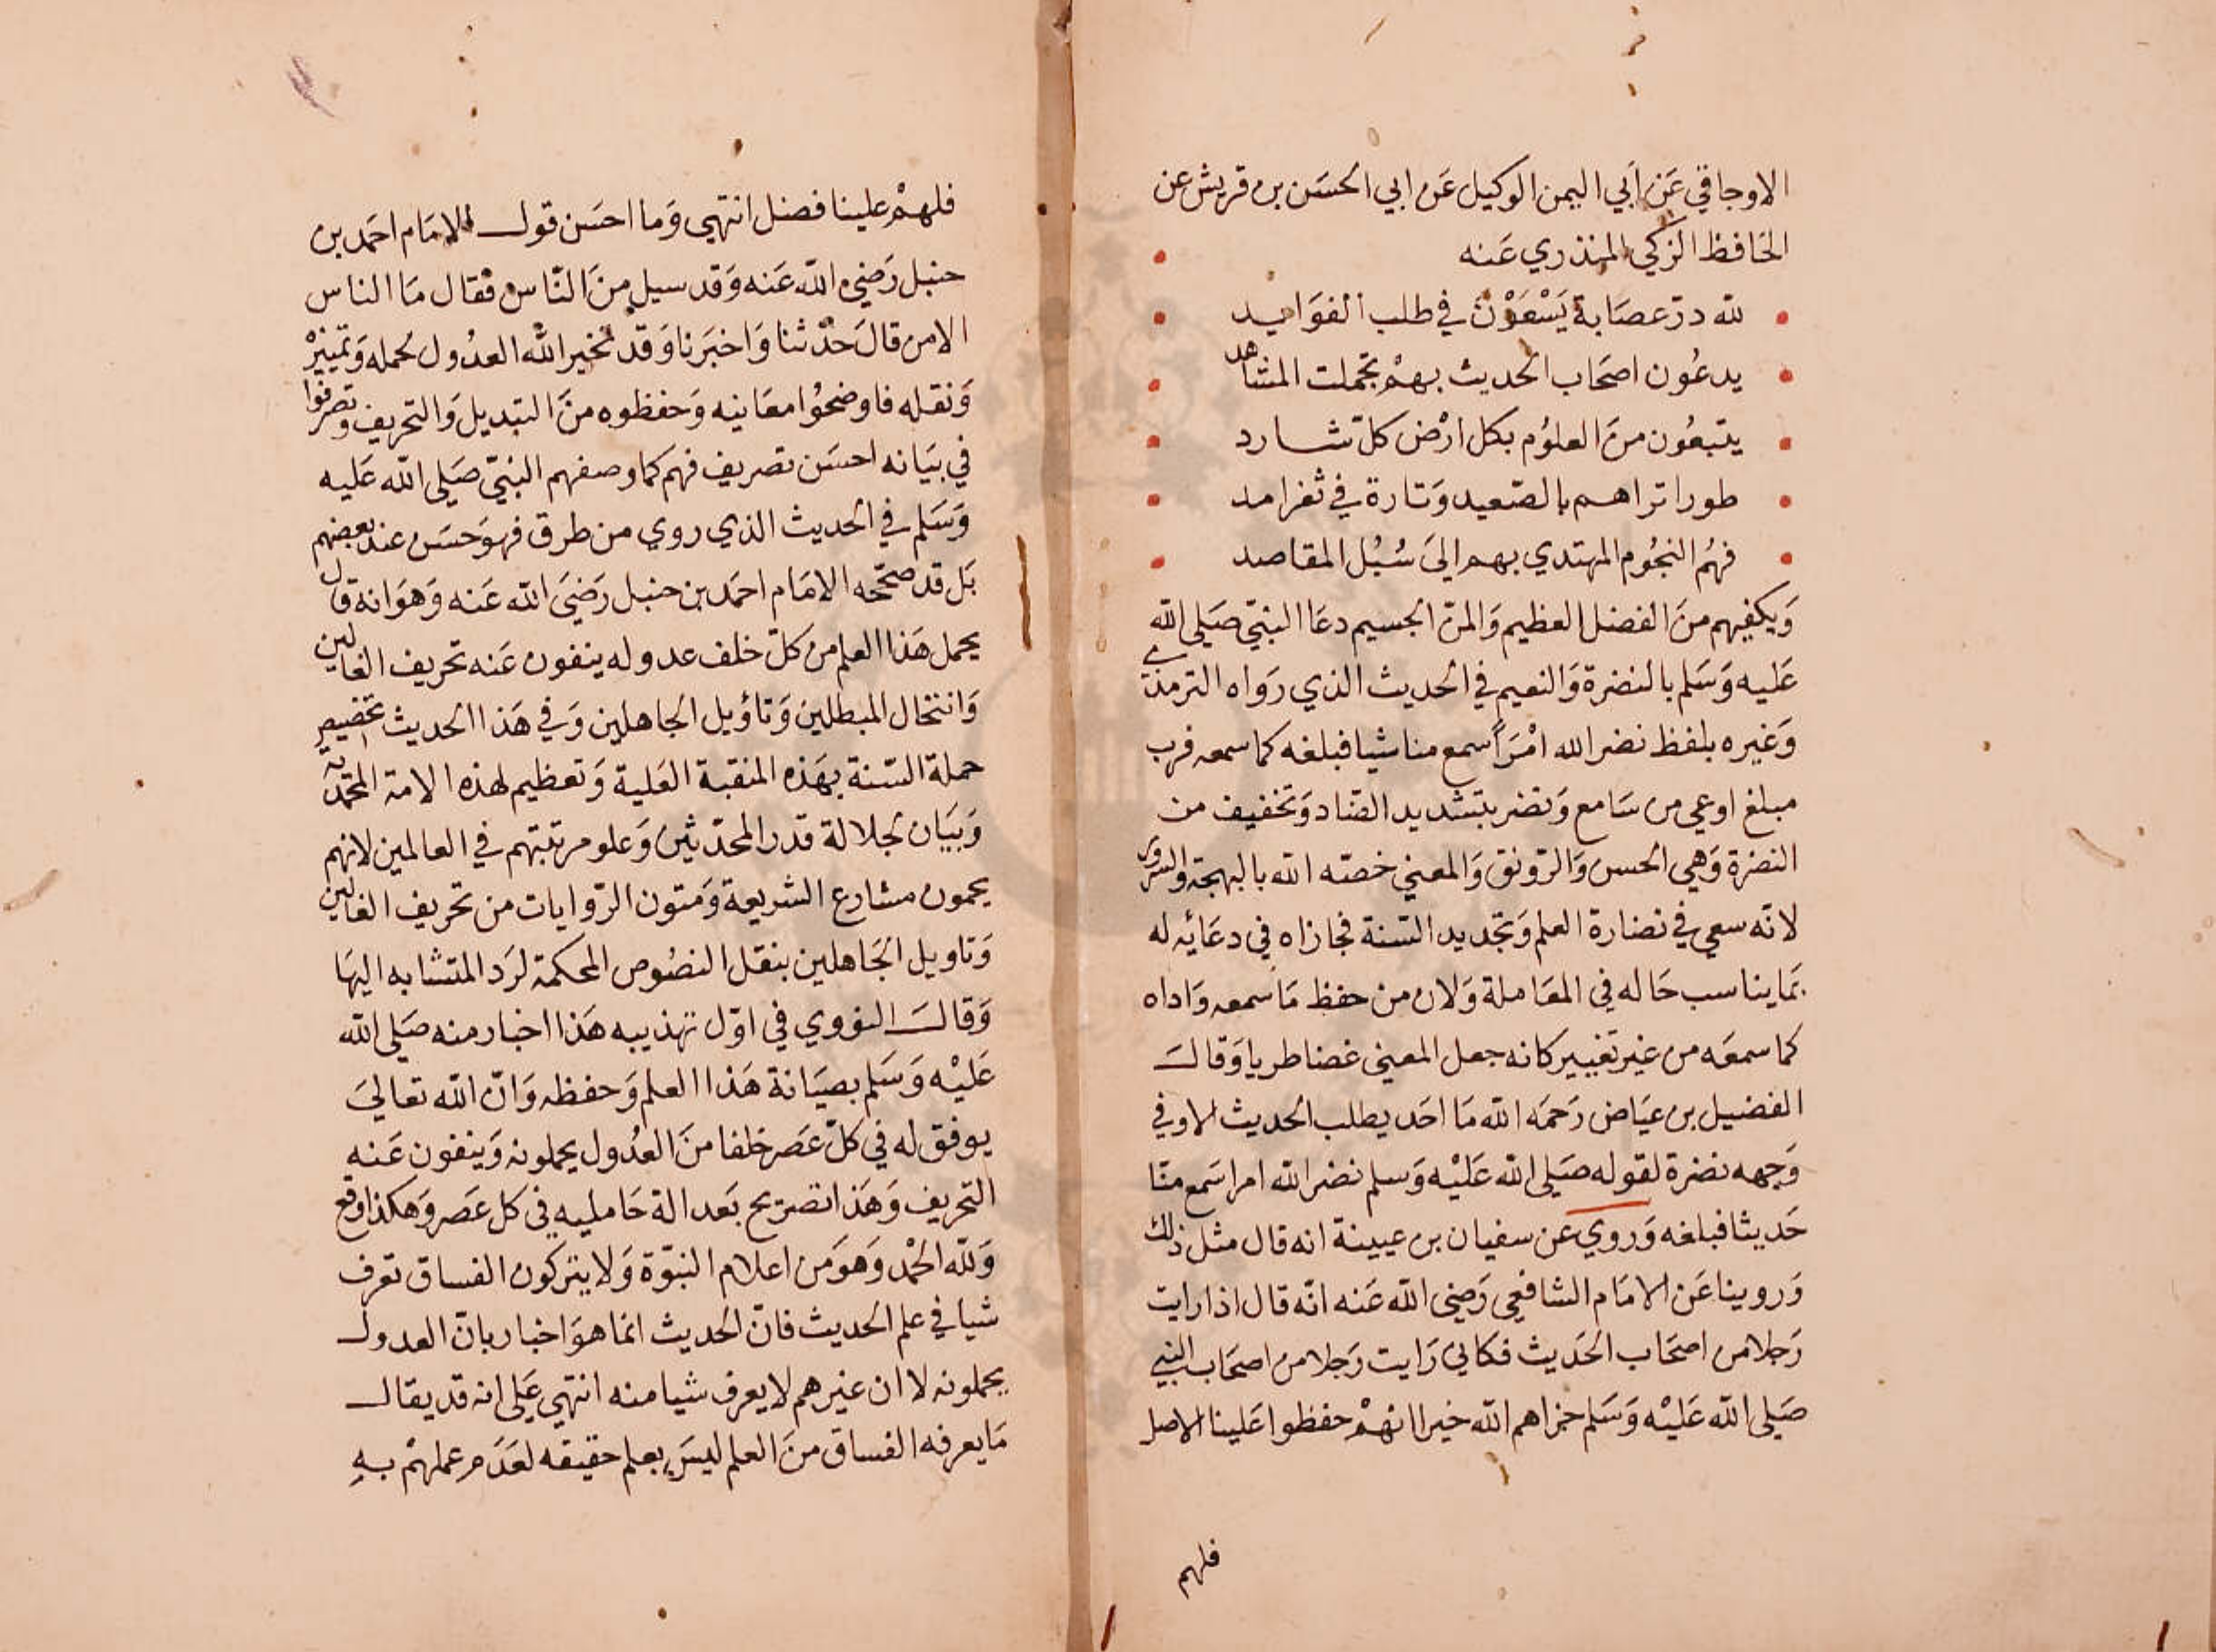 الاوجاقي عَن اَبي اليمن الوكيل عَن ابي الحسَن بن قريش عن
الحَافظ الزكي المنذري عَنه
لله درّ عصَابة يَسْعَوْن في طلب الفوَايد
يدعُون اصحَاب الحديث بهمْ تجملت المشاهد
يتبعُون منَ العلوُم بكل ارْض كلّ شارد
طورا تراهم بالصّعيد وَتارة في ثغر امد
فهُم النجُوم المهتدي بهم اليَ سُبُل المقاصد
وَيكفيهم منَ الفضل العظيم وَالمنّ الجسيم دعَا النبيّ صَلي الله
عَليه وَسَلم بالنضرة وَالنعيم في الحديث الذي رَواه الترمذي
وَغيره بلفظ نضر الله امْرَاً سمع منا شيا فبلغه كما سمعه فرب
مبلغ اوعي من سَامع وَنضر بتشديد الضّاد وَتخفيف من
النضرة وَهي الحسن وَالرّونق وَالمعني خصّه الله بالبهجة والسرور
لانّه سعي في نضارة العلم وَتجديد السّنة فجازاه في دعَائه له
بمَا يناسب حَاله في المعَاملة وَلان من حفظ مَا سمعه وَاداه
كما سمعَه من غير تغيير كانه جعل المعني غضا طريا وَقالَ
الفضيل بن عيَاض رَحمَه الله مَا احَد يطلب الحديث الاوفي
وَجهه نضرة لقوله صَلي الله عَليْه وَسلم نضر الله امرا سَمع منّا
حَديثا فبلغه وَروي عن سفيان بن عيينة انه قال مثل ذلك
وَروينا عَن الامَام الشافعي رَضي الله عَنه انّه قال اذا رايت
رَجلا من اصحَاب الحَديث فكاني رَايت رَجلا من اصحَاب النبي
صَلي الله عَليْه وَسَلم جزاهم الله خيرا انهمْ حفظوا عَلينا الاصل
فلهم
فلهمْ علينا فضل انتهي وَما احسَن قول الامَام احمَد بن
حنبل رَضي الله عَنه وَقد سيل منَ النّاس فقال مَا الناس
الا من قالَ حدّثنا وَاخبَرنا وَقد تخير الله العدُول لحمله وَتمييزْ
وَنقله فاوضحُوا معَانيه وَحفظوه منَ التبديل وَالتحريف وتصرفوا
في بيَانه احسَن تصريف فهم كما وصفهم النبيّ صَلي الله عَليه
وَسَلم في الحديث الذي روي من طرق فهوَ حسَن عند بعضهم
بَل قد صحّحه الامَام احمَد بن حنبل رَضيَ الله عَنه وَهوَ انه قال
يحمل هَذا العلم من كلّ خلف عدوله ينفون عَنه تحريف الغالين
وَانتحال المبطلين وَتاؤيل الجاهلين وَفي هَذا الحديث تخصيص
حملة السّنة بهَذه المنقبة العَلية وَتعظيم لهذه الامة المحمّدية
وَبيَان لجلالة قدر المحدّثين وَعلو مرتبتهم في العالمين لانهم
يحمون مشارع الشريعة وَمتون الرّوايات من تحريف الغالين
وَتاويل الجَاهلين بنقل النصُوص المحكمة لرَد المتشابه اليهَا
وَقالَ النووي في اوّل تهذيبه هَذا اخبار منه صَلي الله
عَليْه وَسَلم بصيَانة هَذا العلم وَحفظه وَانّ الله تعاليَ
يوفق له في كلّ عَصَر خلفا منَ العدُول يحملونه وَينفون عَنه
التحريف وَهَذا تصريح بعَدالة حَامليه في كل عَصر وَهكذا وقع
وَلله الحمْد وَهوَ من اعلام النبوّة وَلا يتركون الفساق تعرف
شيا في علم الحديث فانّ الحديث انما هوَ اخبار بانّ العدول
يحملونه لا ان غيرهم لا يعرف شيا منه انتهي عَلي انه قد يقال
مَا يعرفه الفساق منَ العلم ليسَ بعلم حقيقه لعَدَم عملهمْ بهِ